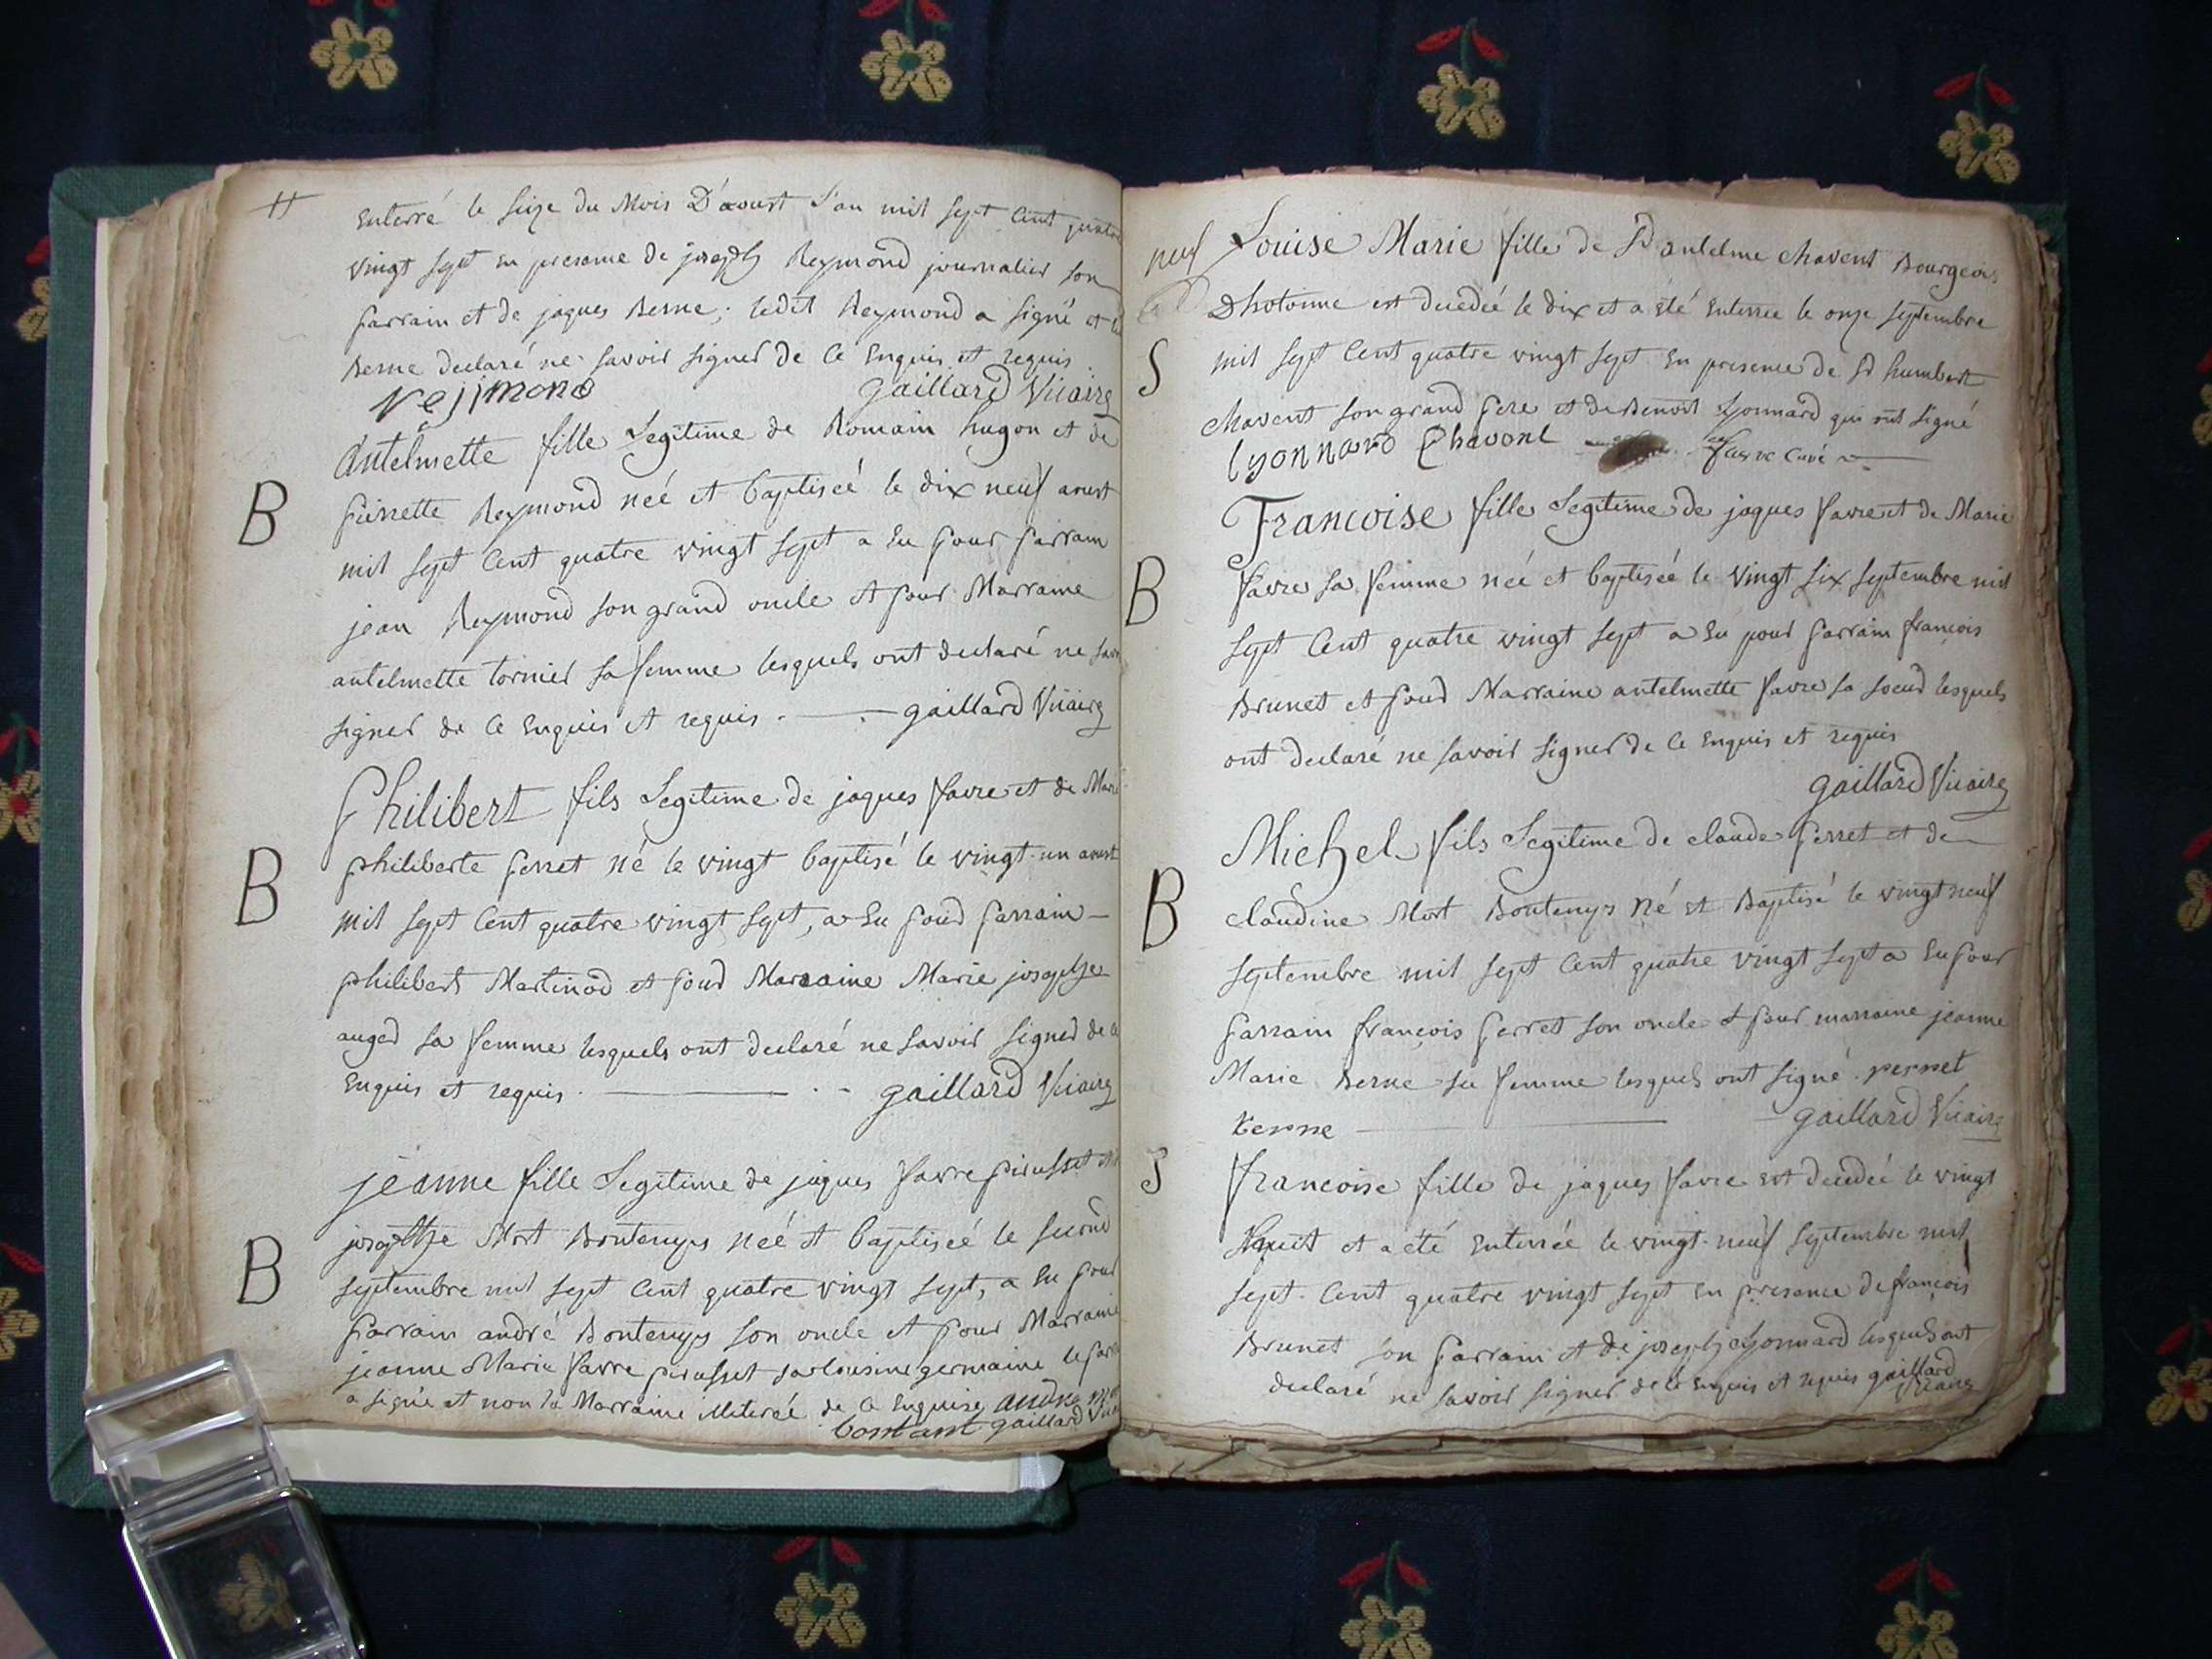 11
Enterré le seize du Mois D'aoust l'an mil sept Cent quatre
vingt sept en presence de joseph Reymond journalier son
parrain et de jaques Berne; ledit Reymond a signé et
Berne declaré ne savoir signer de Ce Enquis et requis
rejjmond gaillard Vicaire
Antelmette fille Legitime de Romain hugon et de
B
pierrette Reymond neé et baptiseé le dix neuf aoust
mil sept Cent quatre vingt sept a Eu pour parrain
jean Reymond son grand oncle et pour Marraine
antelmette tornier sa femme lesquels ont declaré ne savoir
signer de Ce Enquis et requis . gaillard Vicaire
Philibert fils Legitime de jaques favre et de Marie
B
philiberte perret né le vingt baptisé le vingt-un aoust
mil sept Cent quatre vingt sept, a Eu pour parrain
philibert Martinod et pour Marraine Marie josephe
auger sa femme lesquels ont declaré ne savoir signer de Ce
Enquis et requis . gaillard Vicaire
jeanne fille Legitime de jaques favre pirasset et
B
josephe Mort Bontemps neé et baptiseé le second
septembre mil sept Cent quatre vingt sept, a Eu pour
parrain andré Bontemps son oncle et pour Marraine
jeanne Marie favre pirasset sa Cousine germaine le parrain
a signé et non la Marraine illitereé de Ce Enquise andre
bontant gaillard
neuf Louise Marie fille de Sr antelme chavent Bourgeois
Dhotonne est decedeé le dix et a eté Enterreé le onze septembre
S
mil sept Cent quatre vingt sept En presence de Sr humbert
chavent son grand pere et de Benoit Lyonnard qui ont signé
lyonnard Chavent Curé
Francoise fille Legitime de jaques favre et de Marie
B
favre sa femme neé et baptiseé le vingt six septembre mil
sept Cent quatre vingt sept a Eu pour parrain françois
Brunet et pour Marraine antelmette favre sa soeur lesquels
ont declaré ne savoir signer de Ce Enquis et requis
gaillard Vicaire
Michel fils Legitime de claude perret et de
B
claudine Mort Bontemps Né et Baptisé le vingt neuf
septembre mil sept Cent quatre vingt sept a Eu pour
parrain françois perret son oncle et pour marraine jeanne
Marie Berne sa femme lesquels ont signé . perret
berne gaillard Vicaire
S
francoise fille de jaques favre est decedeé le vingt
huit et a eté Enterreé le vingt-neuf septembre mil
sept Cent quatre vingt sept En presence de francois
Brunet son parrain et de joseph Lyonnard lesquels ont
declaré ne savoir signer de Ce Enquis et requis gaillard
Vicaire